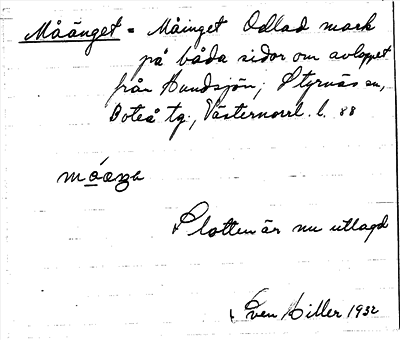 Måänget = Måinget Odlad mark
på båda sidor om avloppet
från Hundsjön, Styrnäs sn,
Boteå tg., Västernorrl. l. 88
Slotten är nu utlagd
Sven Hiller 1932